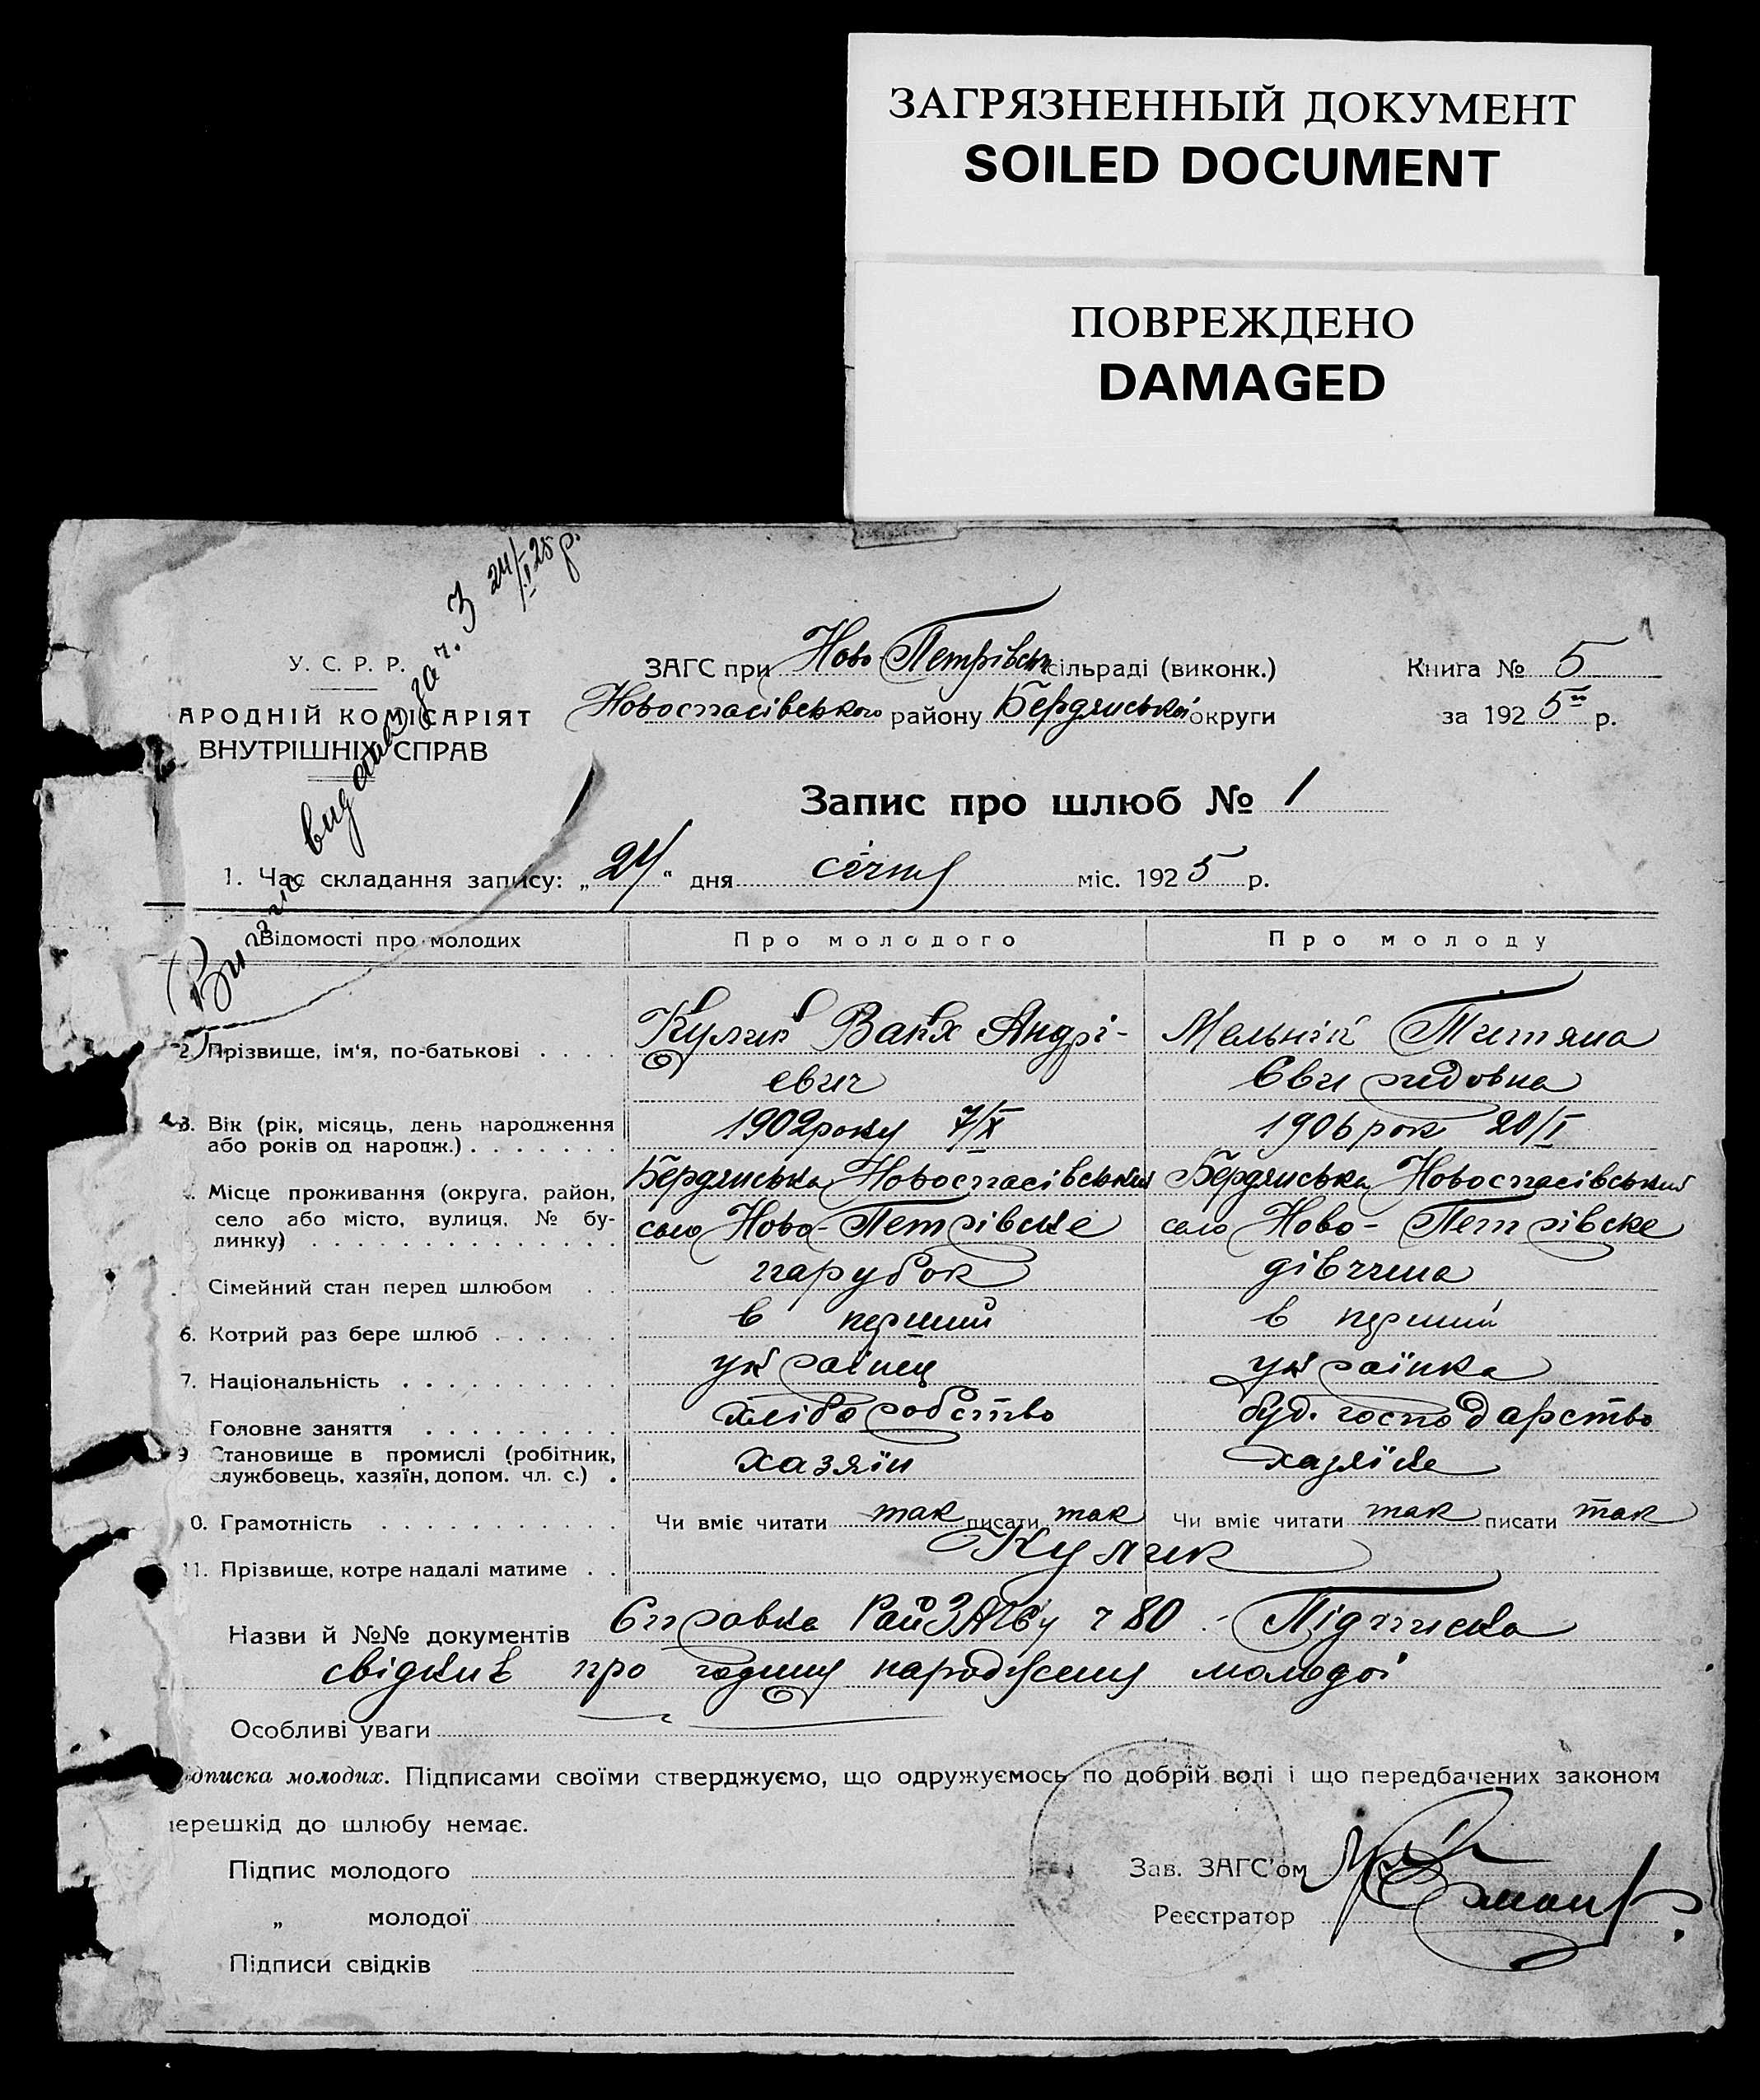 ЗАГРЯЗНЕННЫЙ ДОКУМЕНТ
SOILED DOCUMENT
ПОВРЕЖДЕНО
DAMAGED
Витяг видано за ч. 3 24/I 25 р.
У. С. Р. Р.
АРОДНІЙ КОМІСАРІЯТ
ВНУТРІШНІХ СПРАВ
ЗАГС при Ново-Петрівськ сільраді (виконк.)
Новоспасівського району Бердянської округи
Книга № 5
за 1925 р.
1
Запис про шлюб № 1
1. Час складання запису: „24" дня січня міс. 1925 р.
Відомості про молодих
Про молодого
Про молоду
2. Прізвище, ім'я, по-батькові . . . .
Кулик Вакх Андрі-
евич
Мельник Титяна
Євгидовна
3. Вік (рік, місяць, день народження
або років од народж.) . . . . . . .
1902 року 7/X
1906 рок 20/I
Місце проживання (округа, район,
село або місто, вулиця, № бу-
динку) . . . . . . . . . . . . . .
Бердянська Новоспасівський
село Ново-Петрівске
Бердянська Новоспасівський
село Ново-Петрівске
Сімейний стан перед шлюбом . .
парубок
дівчина
6. Котрий раз бере шлюб . . . . . .
в перший
в перший
7. Національність . . . . . . . . . .
українец
українка
8. Головне заняття . . . . . . . . .
хліборобство
буд. господарство
9 Становище в промислі (робітник,
службовець, хазяїн, допом. чл. с.) .
хазяїн
хазяїка
0. Грамотність . . . . . . . . . . .
Чи вміє читати так писати так
Чи вміє читати так писати так
11. Прізвище, котре надалі матиме . .
Кулик
Назви й №№ документів Справка РайЗАГСу ч 80 - Підписка
свідків про годину народження молодої
Особливі уваги
ідписка молодих. Підписами своїми стверджуємо, що одружуємось по добрій волі і що передбачених законом
перешкід до шлюбу немає.
Підпис молодого
„ молодої
Підписи свідків
Зав. ЗАГС'ом
Реєстратор